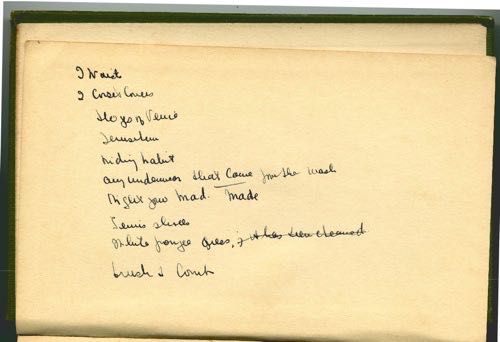 I Waist
2 Corset Covers
Stones of Venice
Jerusalem
riding habit
any underwear that came from the wash
Night gow Mad. Made
Tennis shoes
White pongee dress, if it has been cleaned
brush & Comb